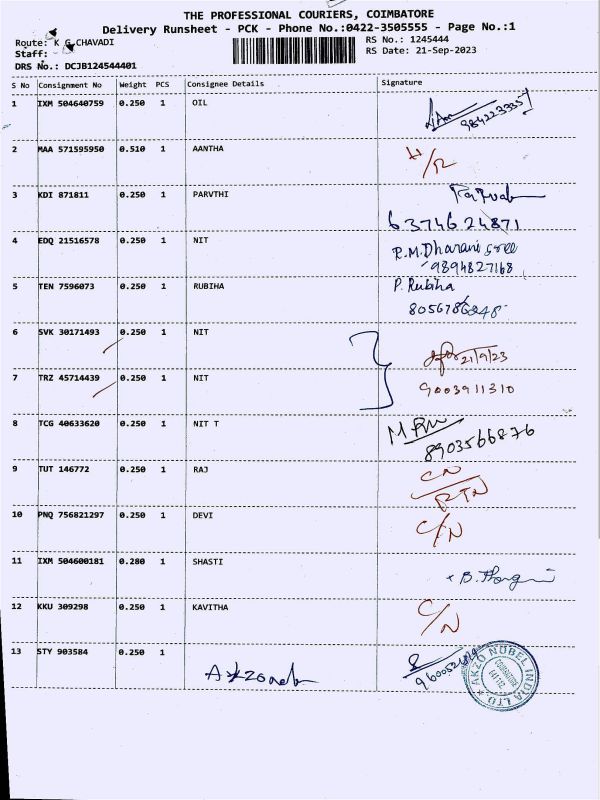 THE PROFESSIONAL COURIERS, COIMBATORE
Delivery Runsheet - PCK - Phone No.:0422-3505555 - Page No.:1
Route: K G CHAVADI
RS No.: 1245444
Staff:
RS Date: 21-Sep-2023
DRS No.: DCJB124544401
S No Consignment No Weight PCS Consignee Details Signature
1 IXM 504640759 0.250 1 OIL
2 MAA 571595950 0.510 1 AANTHA
3 KDI 871811 0.250 1 PARVTHI
6374624871
4 EDQ 21516578 0.250 1 NIT R.M.Dharani sree
9894827168
5 TEN 7596073 0.250 1 RUBIHA P. Rubiha
6 SVK 30171493 0.250 1 NIT 21/9/23
7 TRZ 45714439 0.250 1 NIT 9003911310
8 TCG 40633620 0.250 1 NIT T
8903566876
9 TUT 146772 0.250 1 RAJ
RTN
10 PNQ 756821297 0.250 1 DEVI C/N
11 IXM 504600181 0.280 1 SHASTI
12 KKU 309298 0.250 1 KAVITHA C/N
13 STY 903584 0.250 1
AKZO NOBEL INDIA LTD
COIMBATORE